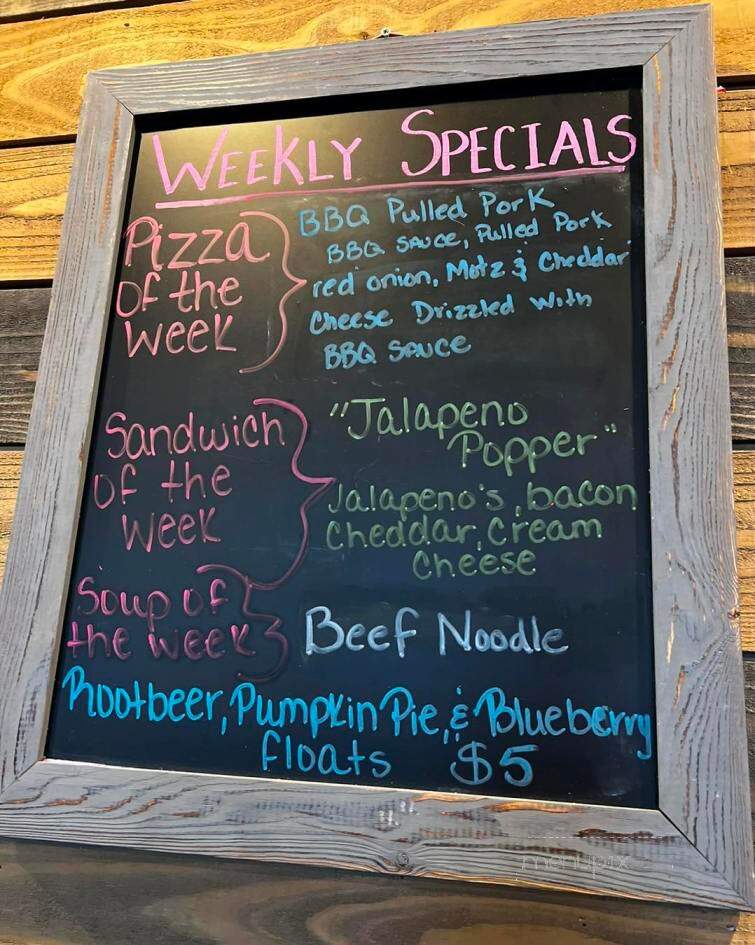 WEEKLY SPECIALS
Pizza
of the
week
BBQ Pulled Pork
BBQ sauce, Pulled Pork
red onion, Motz & Cheddar
Cheese Drizzled with
BBQ sauce
Sandwich
of the
week
"Jalapeno
Popper"
Jalapeno's, bacon
Cheddar, Cream
Cheese
Soup of
the week
Beef Noodle
Rootbeer, Pumpkin Pie, & Blueberry
floats $5
menupix